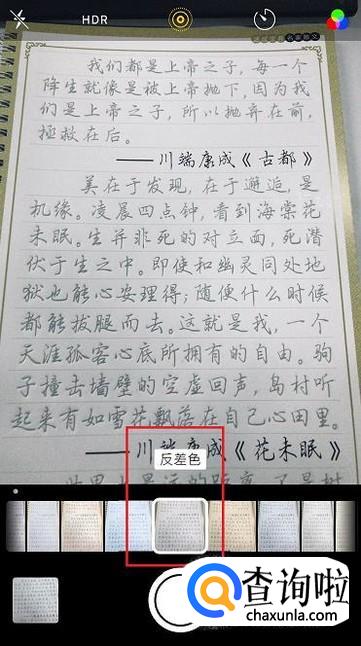 HDR
名家范文
我们都是上帝之子，每一个
降生就像是被上帝抛下，因为我
们是上帝之子，所以抛弃在前，
拯救在后。
——川端康成《古都》
美在于发现，在于邂逅，是
机缘。凌晨四点钟，看到海棠花
未眠。生并非死的对立面，死潜
伏于生之中。即使和幽灵同处地
狱也能心安理得；随便什么时候
都能拔腿而去。这就是我，一个
天涯孤客心底所拥有的自由。驹
子撞击墙壁的空虚回声，岛村听
起来有如雪花飘落在自己心田里。
——川端康成《花未眠》
反差色
查询啦
chaxunla.com